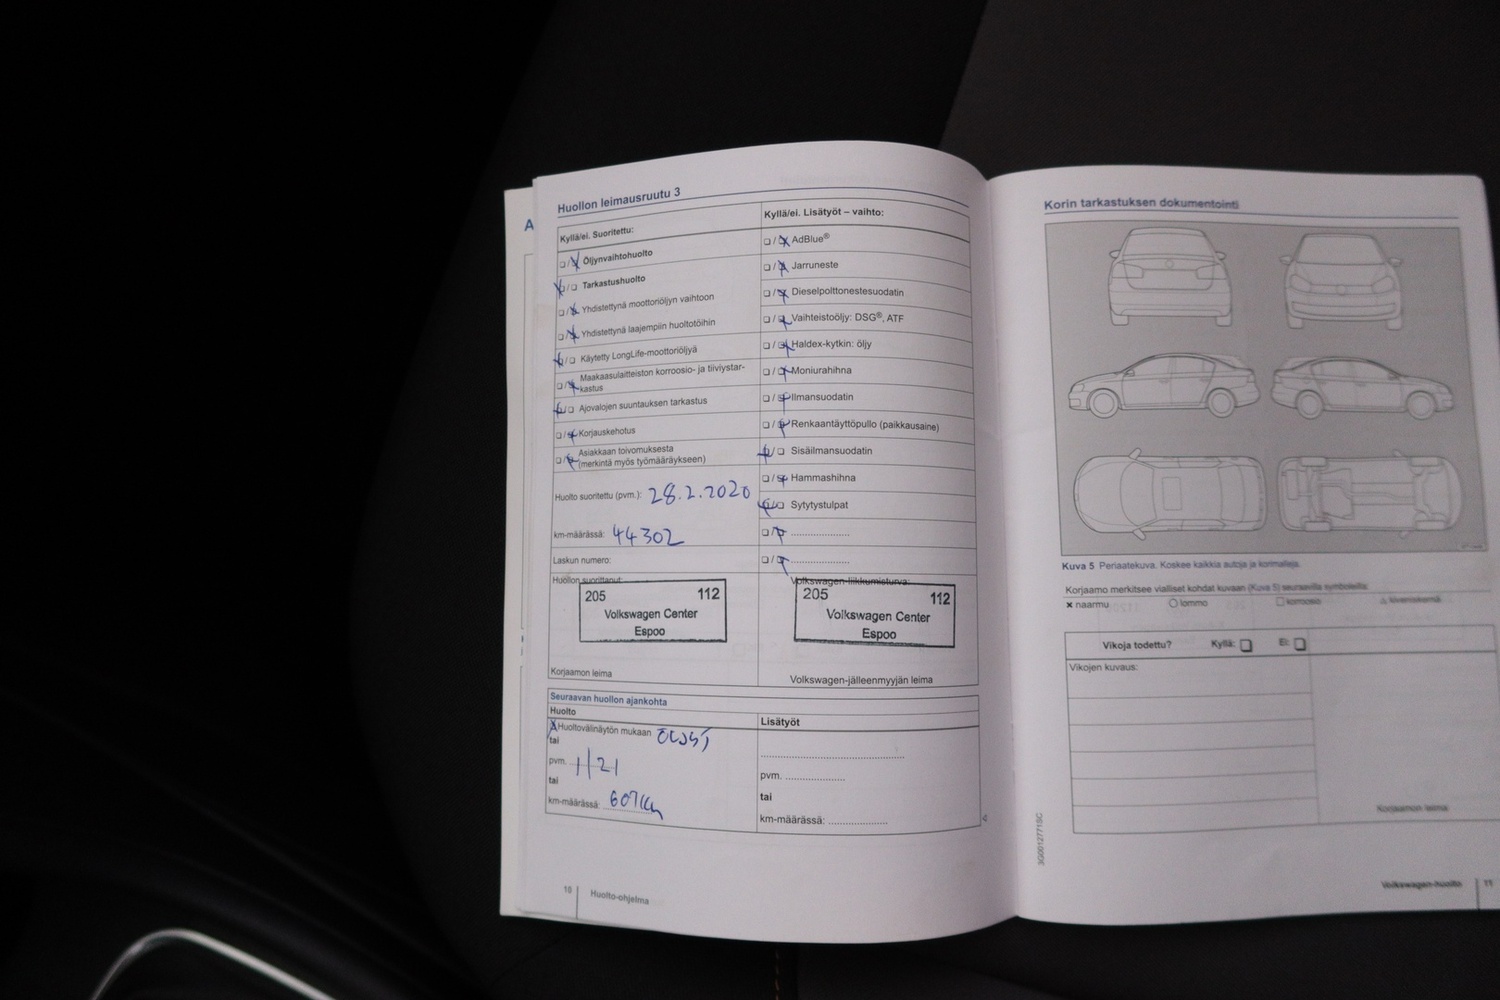 A
Huollon leimausruutu 3
Kyllä/ei. Suoritettu:
❑ / ❑ Öljynvaihtohuolto
❑ / ❑ Tarkastushuolto
❑ / ❑ Yhdistettynä moottoriöljyn vaihtoon
❑ / ❑ Yhdistettynä laajempiin huoltotöihin
❑ / ❑ Käytetty LongLife-moottoriöljyä
❑ / ❑ Maakaasulaitteiston korroosio- ja tiiviystar-
kastus
❑ / ❑ Ajovalojen suuntauksen tarkastus
❑ / ❑ Korjauskehotus
❑ / ❑ Asiakkaan toivomuksesta
(merkintä myös työmääräykseen)
Huolto suoritettu (pvm.): 28.2.2020
km-määrässä: 44302
Laskun numero:
Kyllä/ei. Lisätyöt – vaihto:
❑ / ❑ AdBlue®
❑ / ❑ Jarruneste
❑ / ❑ Dieselpolttonestesuodatin
❑ / ❑ Vaihteistoöljy: DSG®, ATF
❑ / ❑ Haldex-kytkin: öljy
❑ / ❑ Moniurahihna
❑ / ❑ Ilmansuodatin
❑ / ❑ Renkaantäyttöpullo (paikkausaine)
❑ / ❑ Sisäilmansuodatin
❑ / ❑ Hammashihna
❑ / ❑ Sytytystulpat
❑ / ❑ ....................
❑ / ❑ ....................
Huollon suorittanut:
205 112
Volkswagen Center
Espoo
Korjaamon leima
Volkswagen-liikkumisturva:
205 112
Volkswagen Center
Espoo
Volkswagen-jälleenmyyjän leima
Seuraavan huollon ajankohta
Huolto
Huoltovälinäytön mukaan
tai
pvm. 1/21
tai
km-määrässä:
Lisätyöt
....................
pvm. ....................
tai
km-määrässä: ....................
10 Huolto-ohjelma
Korin tarkastuksen dokumentointi
Kuva 5 Periaatekuva. Koskee kaikkia autoja ja korimalleja.
Korjaamo merkitsee vialliset kohdat kuvaan (Kuva 5) seuraavilla symboleilla:
× naarmu ○ lommo ❑ korroosio △ kiveniskemä
Vikoja todettu? Kyllä: ❑ Ei: ❑
Vikojen kuvaus:
Korjaamon leima
3G0012771SC
Volkswagen-huolto 11